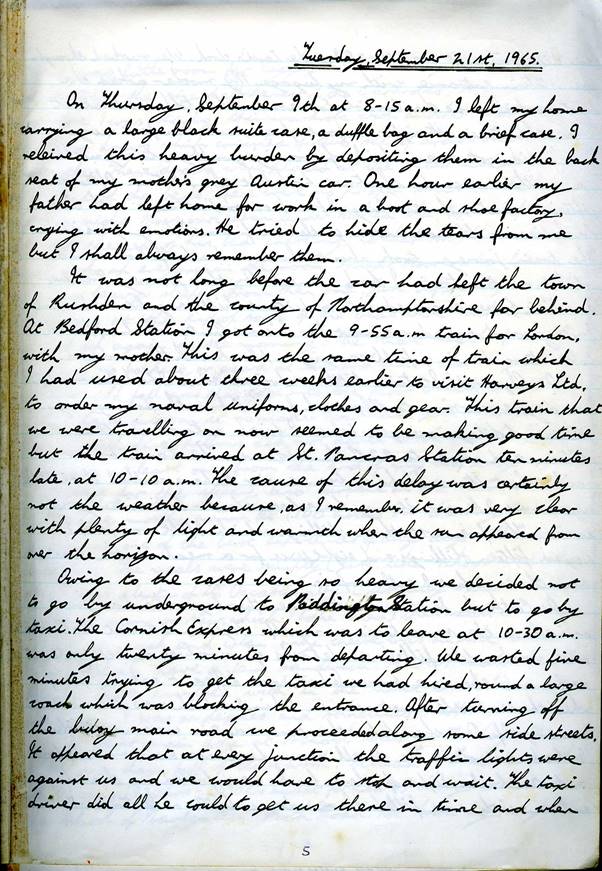 Tuesday, September 21st, 1965.
On Thursday, September 9th at 8-15 a.m. I left my home
carrying a large black suite case, a duffle bag and a brief case. I
releived this heavy burden by depositing them in the back
seat of my mother's grey Austin car. One hour earlier my
father had left home for work in a boot and shoe factory,
crying with emotions. He tried to hide the tears from me
but I shall always remember them.
It was not long before the car had left the town
of Rushden and the county of Northamptonshire far behind.
At Bedford Station I got onto the 9-55 a.m train for London,
with my mother. This was the same time of train which
I had used about three weeks earlier to visit Harveys Ltd.,
to order my naval uniforms, clothes and gear. This train that
we were travelling on now seemed to be making good time
but the train arrived at St. Pancras Station ten minutes
late, at 10-10 a.m. The cause of this delay was certainly
not the weather because, as I remember, it was very clear
with plenty of light and warmth when the sun appeared from
over the horizon.
Owing to the cases being so heavy we decided not
to go by underground to Paddington Station but to go by
taxi. The Cornish Express which was to leave at 10-30 a.m.
was only twenty minutes from departing. We wasted five
minutes trying to get the taxi we had hired, round a large
coach which was blocking the entrance. After turning off
the main road we proceeded along some side streets.
It appeared that at every junction the traffic lights were
against us and we would have to stop and wait. The taxi
driver did all he could to get us there in time and when
5